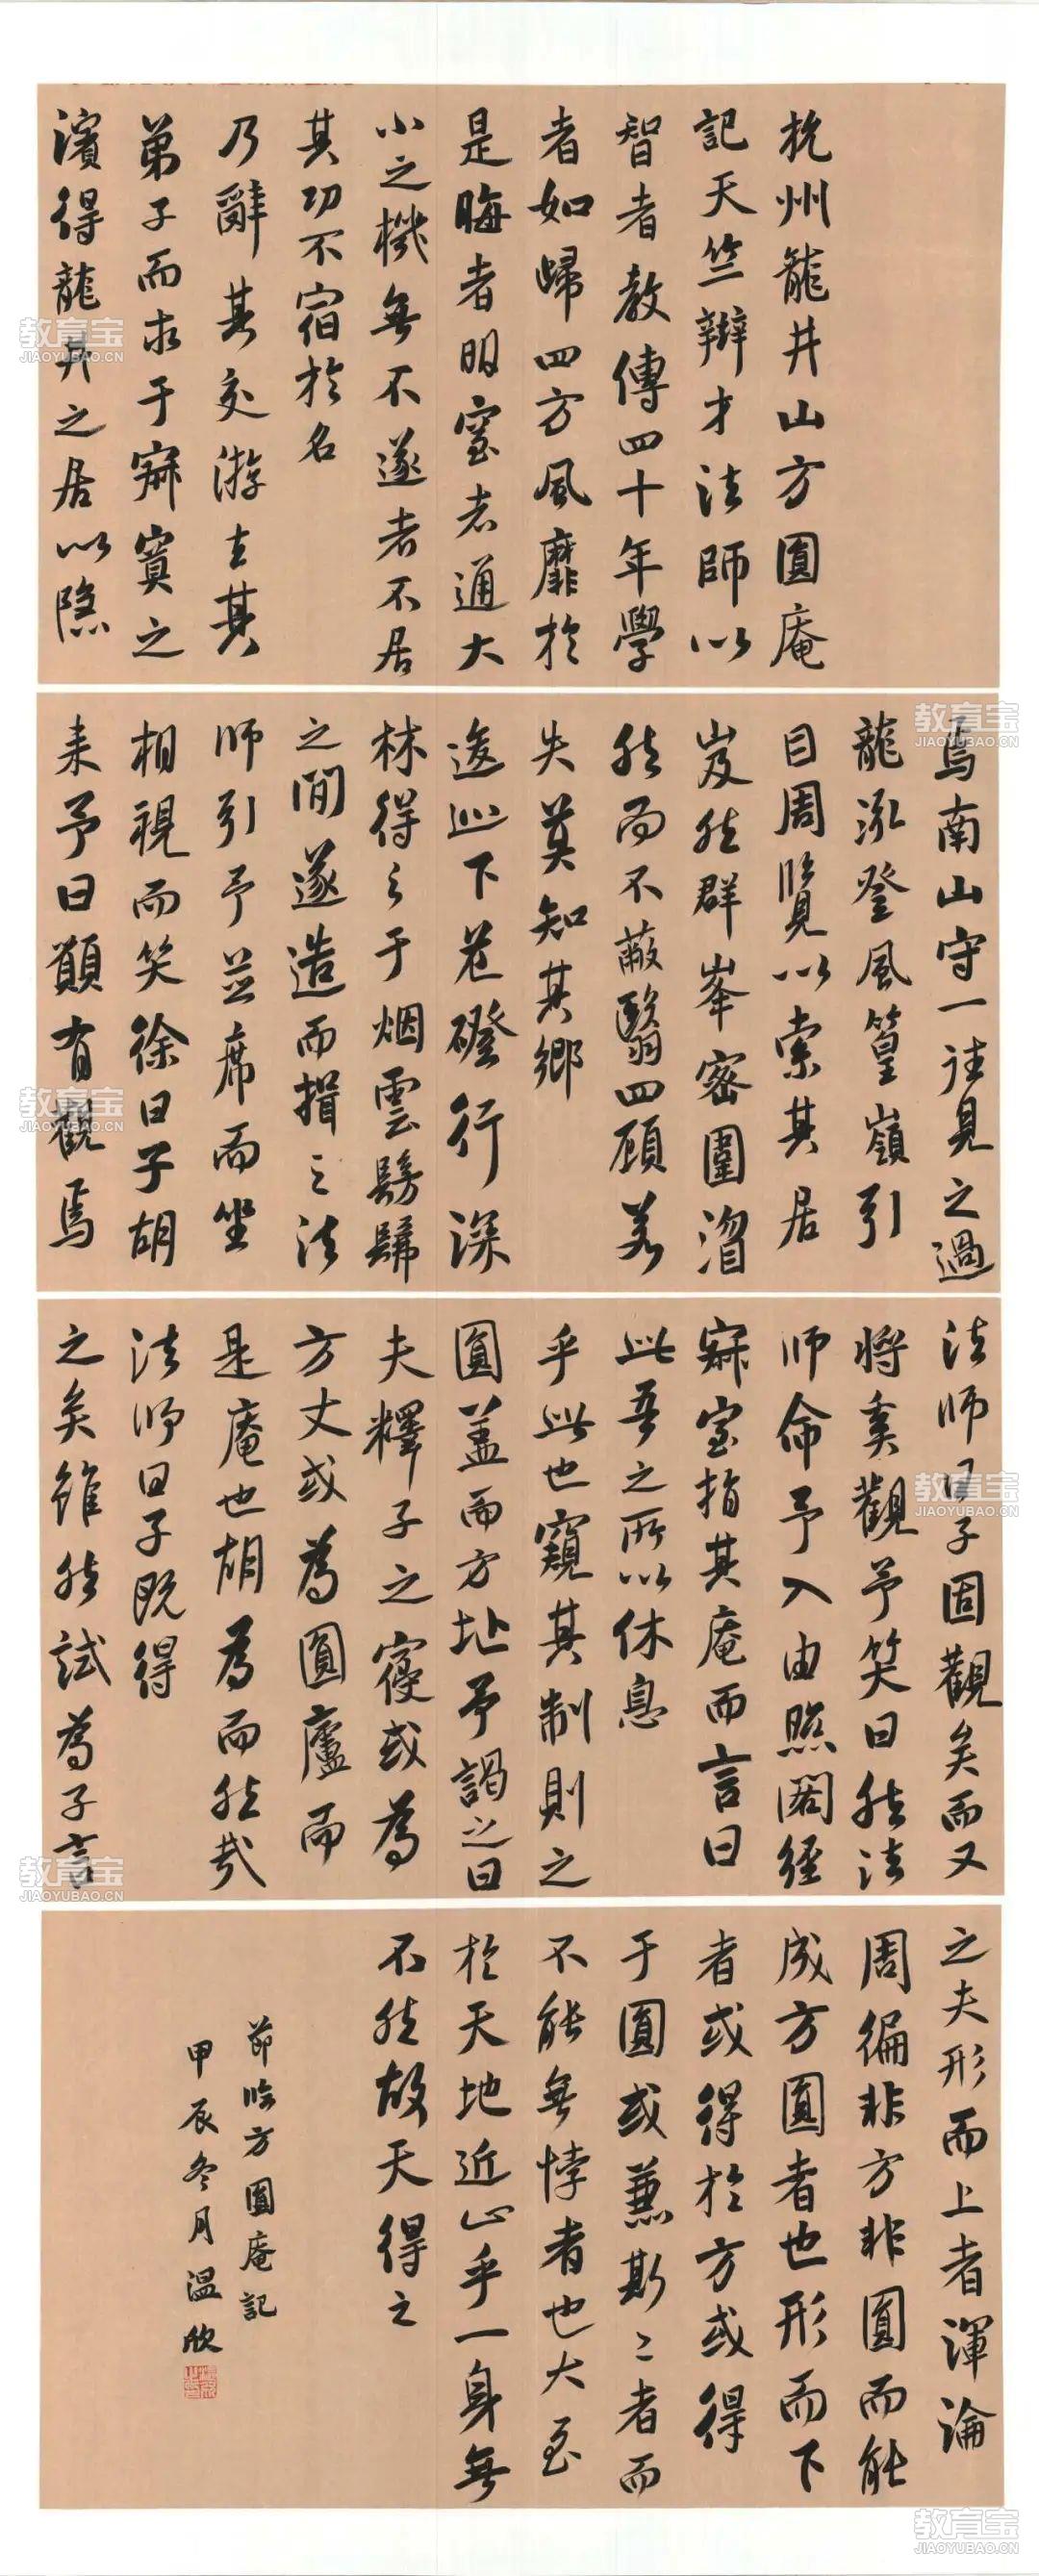 杭州龍井山方圓庵
記天竺辯才法師以
智者教傳四十年學
者如歸四方風靡於
是晦者明窒者通大
小之機無不遂者不居
其功不宿於名
乃辭其交游去其
弟子而求于寂寞之
濱得龍井之居以隱
焉南山守一往見之過
龍泓登風篁嶺引
目周覽以索其居
岌然群峯密圍溍
然而不蔽翳四顧若
失莫知其鄉
逡巡下危磴行深
林得之于烟雲髣髴
之間遂造而揖之法
師引予並席而坐
相視而笑徐曰子胡
来予曰願有觀焉
法師曰子固觀矣而又
將奚觀予笑曰然法
師命予入由照閣經
寂室指其庵而言曰
此吾之所以休息
乎此也窺其制則之
圓盖而方址予謁之曰
夫釋子之寢或為
方丈或為圓廬而
是庵也胡為而然哉
法師曰子既得
之矣雖然試為子言
之夫形而上者渾淪
周徧非方非圓而能
成方圓者也形而下
者或得於方或得
于圓或兼斯二者而
不能無悖者也大至
於天地近止乎一身無
不然故天得之
節臨方圓庵記
甲辰冬月溫欣
教育宝
JIAOYUBAO.CN
教育宝
JIAOYUBAO.CN
教育宝
JIAOYUBAO.CN
教育宝
JIAOYUBAO.CN
教育宝
JIAOYUBAO.CN
教育宝
JIAOYUBAO.CN